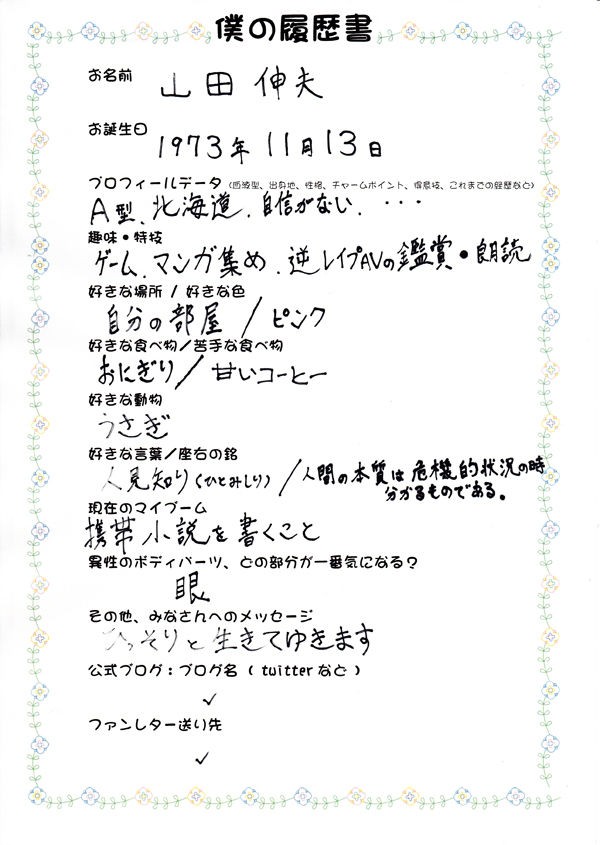 僕の履歴書
お名前 山田伸夫
お誕生日 1973年11月13日
プロフィールデータ（血液型、出身地、性格、チャームポイント、得意技、これまでの経歴など）
A型、北海道、自信がない、・・・
趣味・特技
ゲーム、マンガ集め、逆レイプAVの鑑賞・朗読
好きな場所 / 好きな色
自分の部屋 / ピンク
好きな食べ物／苦手な食べ物
おにぎり / 甘いコーヒー
好きな動物
うさぎ
好きな言葉／座右の銘
人見知り（ひとみしり） / 人間の本質は危機的状況の時
分かるものである。
現在のマイブーム
携帯小説を書くこと
異性のボディパーツ、どの部分が一番気になる？
眼
その他、みなさんへのメッセージ
ひっそりと生きてゆきます
公式ブログ：ブログ名（twitterなど）
✓
ファンレター送り先
✓